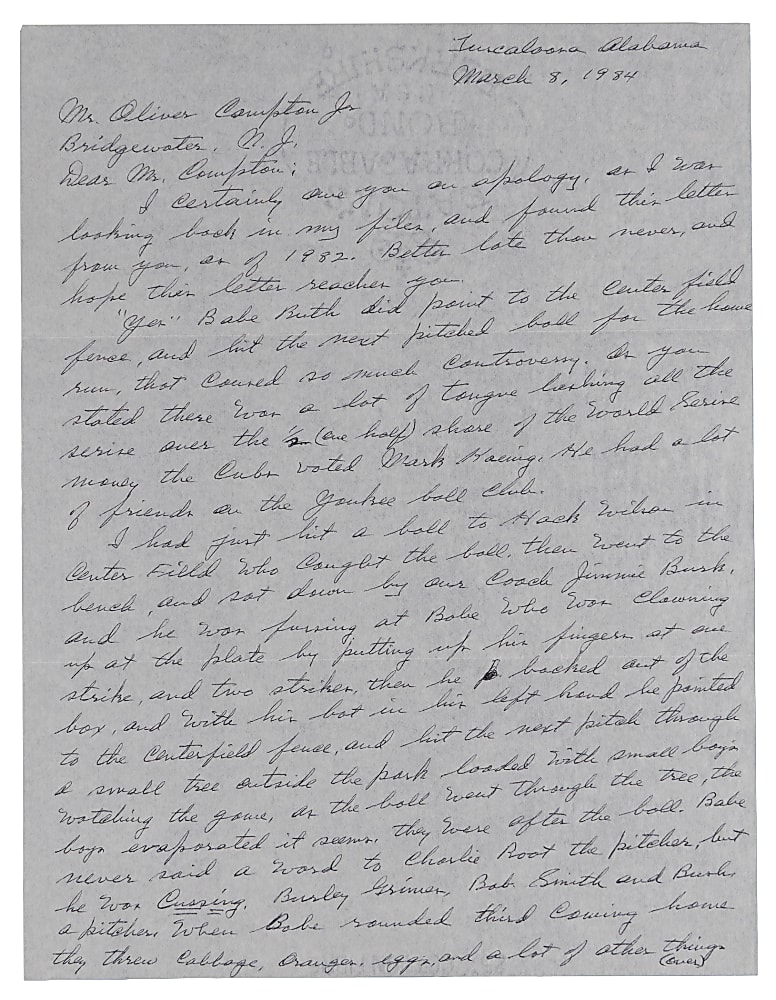 Tuscaloosa Alabama
March 8, 1984
Mr. Oliver Compton Jr
Bridgewater, N. J.
Dear Mr. Compton;
I certainly owe you an apology, as I was
looking back in my files, and found this letter
from you, as of 1982. Better late than never, and
hope this letter reaches you.
"Yes" Babe Ruth did point to the center field
fence, and hit the next pitched ball for the home
run, that caused so much controversy. As you
stated there was a lot of tongue lashing all the
serise over the ½ (one half) share of the World Serise
money the Cubs voted Mark Koenig. He had a lot
of friends on the Yankee ball club.
I had just hit a ball to Hack Wilson in
Center Field who caught the ball, then went to the
bench, and sat down by our Coach Jimmie Burk,
and he was fussing at Babe who was clowning
up at the plate by putting up his fingers at one
strike, and two strikes, then he backed out of the
box, and with his bat in his left hand he pointed
to the centerfield fence, and hit the next pitch through
a small tree outside the park loaded with small boys
watching the game, as the ball went through the tree, the
boys evaporated it seems, they were after the ball. Babe
never said a word to Charlie Root the pitcher, but
he was Cussing, Burley Grimes, Bob Smith and Bush,
a pitcher. When Babe rounded third coming home
they threw cabbage, oranges, eggs, and a lot of other things
(over)